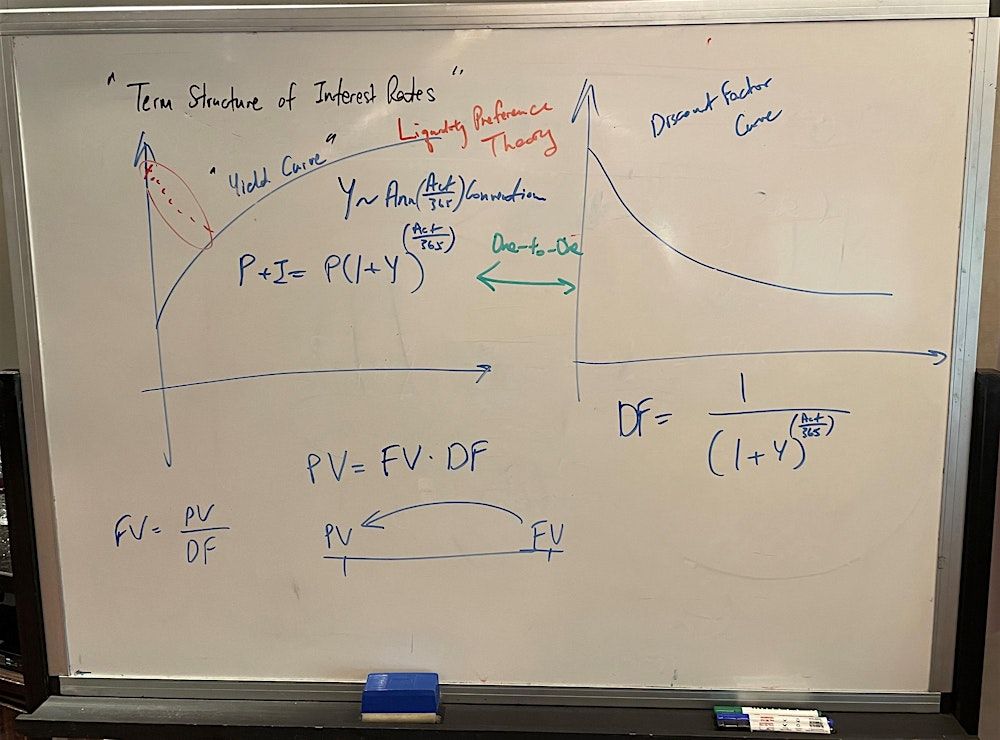 "Term Structure of Interest Rates"
Liquidity Preference
Theory
"Yield Curve"
Y~ Ann(Act/365) Convention
P+I= P(1+Y)^(Act/365)
One-to-One
Discount Factor
Curve
DF= 1/(1+Y)^(Act/365)
PV= FV · DF
FV= PV/DF
PV FV